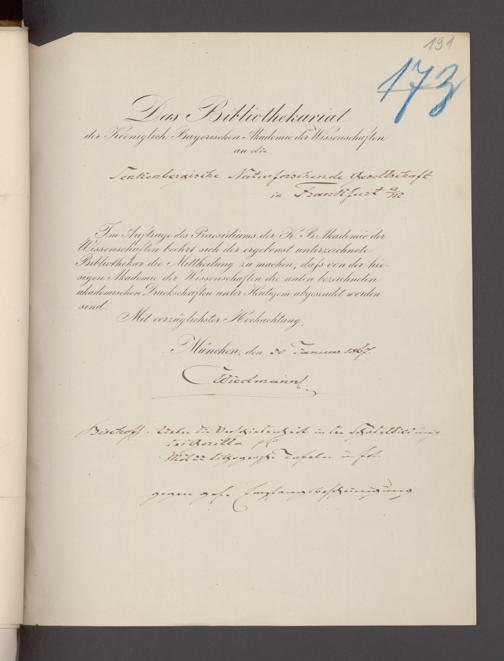 191
173
Das Bibliothekariat
der Königlich Bayerischen Akademie der Wissenschaften
an die
Senkenbergische Naturforschende Gesellschaft
in Frankfurt a/M
Im Auftrage des Praesidiums der K. B. Akademie der
Wissenschaften beehrt sich der ergebenst unterzeichnete
Bibliothekar die Mittheilung zu machen, daſs von der hie-
sigen Akademie der Wissenschaften die unten bezeichneten
akademischen Druckschriften unter Heutigem abgesendet worden
sind.
Mit vorzüglichster Hochachtung.
München, den 30 Januar 1867.
Wiedmann
Bischoff. Ueber die Verschiedenheit in der Schädelbildung
des Gorilla
Mit 22 lithographi Tafeln in fol.
gegen gefl. Empfangsbescheinigung